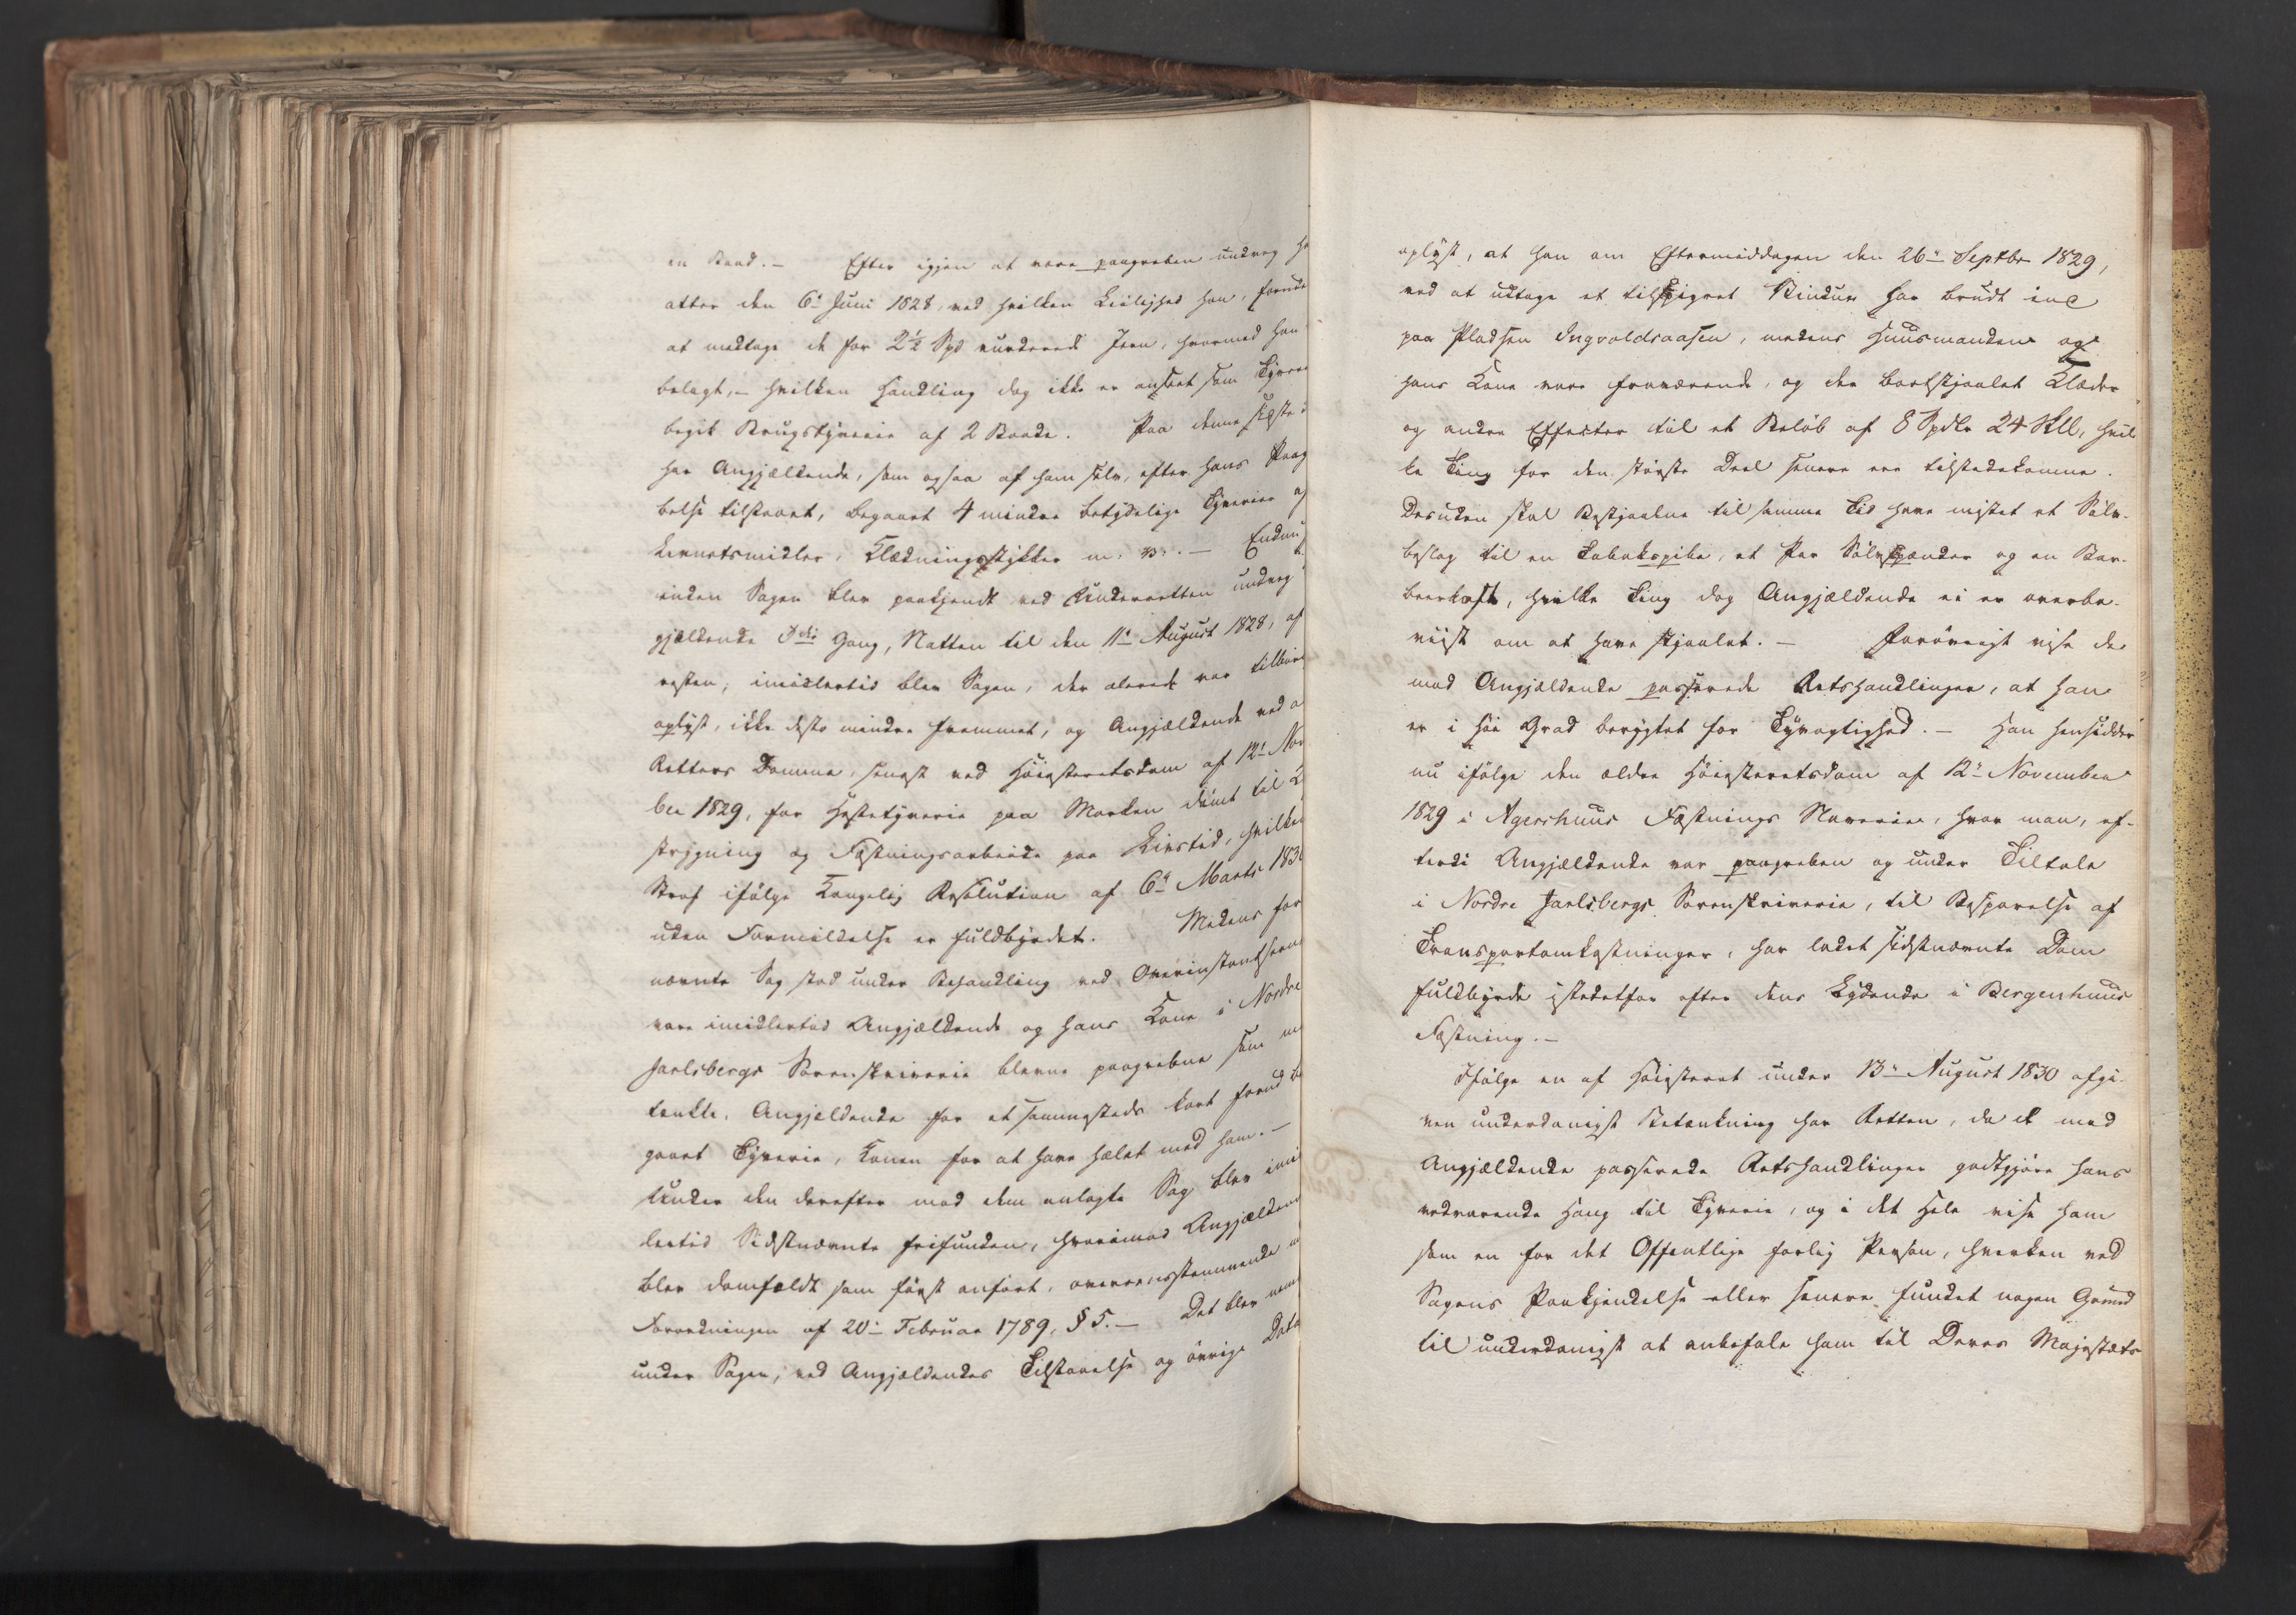 en Baad. — Efter igjen at være paagreben undveg ha
atter den 6te Juni 1828, ved hvilken Leilighed han, foruden
at medtage de for 2½ Spd vurderede Jern, hvormed han
belagt, — hvilken Handling dog ikke er anseet som Tyveri
begik Brugstyverie af 2 Baade. Paa denne sidste
har Angjældende, som ogsaa af ham selv, efter hans Paag
belse tilstaaet, begaaet 4 mindre betydelige Tyverier af
Levnetsmidler, Klædningsstykker m. v. — Endnu
inden Sagen blev paakjendt ved Underretten undveg
gjældende 3die Gang, Natten til den 11te August 1828, af
resten; imidlertid blev Sagen, der alerede var tilbør
oplyst, ikke desto mindre fremmet, og Angjældende ved a
Retters Domme, senest ved Høiesteretsdom af 12te Nov
ber 1829, for Hestetyverie paa Marken dømt til K
strygning og Fæstningsarbeide paa Livstid, hvilken
Straf ifølge Kongelig Resolution af 6te Marts 1830
uden Formildelse er fuldbyrdet. Medens for
nævnte Sag stod under Behandling ved Overinstantserne
vare imidlertid Angjældende og hans Kone i Nordre
Jarlsbergs Sorenskriverie blevne paagrebne som m
tænkte, Angjældende for et sammesteds kort forud be
gaaet Tyverie, Konen for at have hælet med ham. —
Under den derefter mod dem anlagte Sag blev imid
lertid Sidstnævnte frifunden, hvorimod Angjældende
blev domfældt som først anført, overeensstemmende m
Forordningen af 20de Februar 1789, § 5. — Det blev nem
under Sagen, ved Angjældendes Tilstaaelse og øvrige Data
oplyst, at han om Eftermiddagen den 26de Septbr 1829,
ved at udtage et tilspigret Vindue har brudt ind
paa Pladsen Ingvoldsaasen, medens Huusmanden og
hans Kone vare fraværende, og der bortstjaalet Klæder
og andre Effecter til et Beløb af 8 Spdlr 24 Skll, hvil
ke Ting for den største Deel senere ere tilstedekomne.
Desuden skal Bestjaalne til samme Tid have mistet et Sølv-
beslag til en Tobakspibe, et Par Sølvspænder og en Bar-
beerkost, hvilke Ting dog Angjældende ei er overbe-
viist om at have stjaalet. — Forøvrigt vise de
mod Angjældende passerede Retshandlinger, at han
er i høi Grad berygtet for Tyvagtighed. — Han hensidder
nu ifølge den ældre Høiesteretsdom af 12te November
1829 i Agershuus Fæstnings Slaverie, hvor man, ef-
terdi Angjældende var paagreben og under Tiltale
i Nordre Jarlsbergs Sorenskriverie, til Besparelse af
Transportomkostninger, har ladet sidstnævnte Dom
fuldbyrde istedetfor efter dens Lydende i Bergenhuus
Fæstning. —
Ifølge en af Høiesteret under 13de August 1830 afgi-
ven underdanigst Betænkning har Retten, da de mod
Angjældende passerede Retshandlinger godtgjøre hans
vedvarende Hang til Tyverie, og i det Hele vise ham
som en for det Offentlige farlig Person, hverken ved
Sagens Paakjendelse eller senere fundet nogen Grund
til underdanigst at anbefale ham til Deres Majestæts